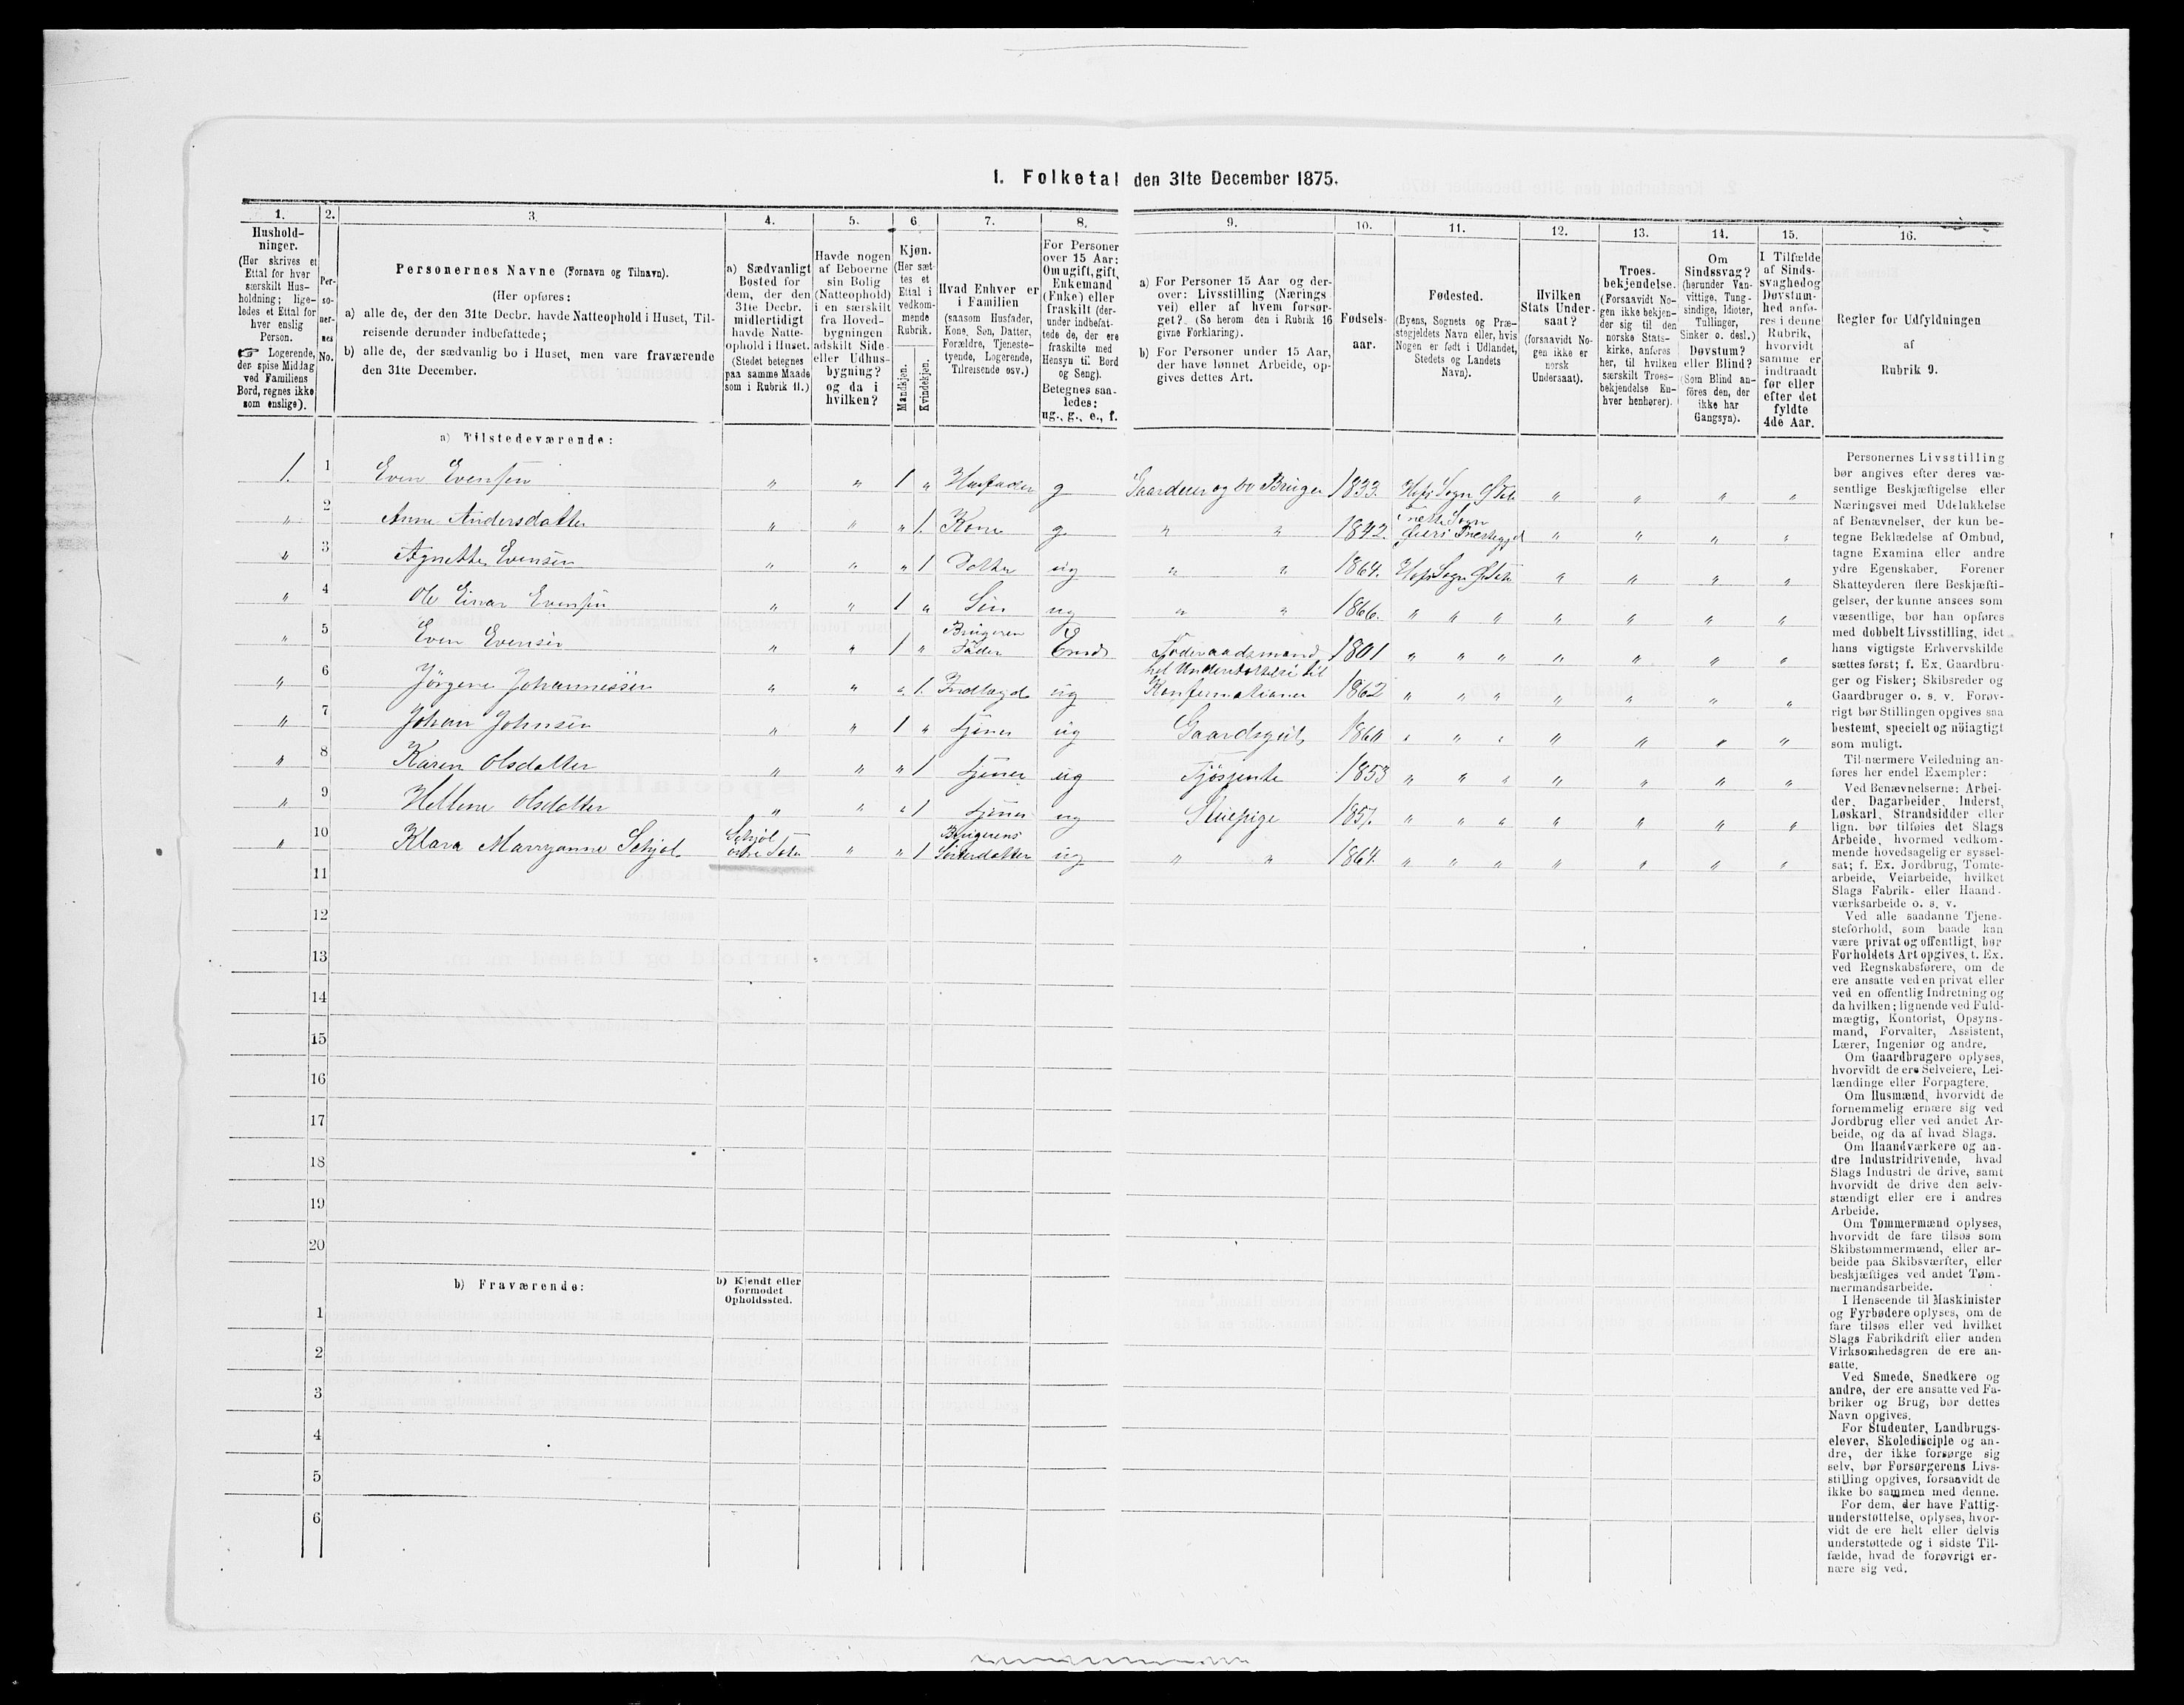 1. Folketal den 31te December 1875.
1.
2.
3.
4.
5.
6.
7.
8.
9.
10.
11.
12.
13.
14.
15.
16.
Hushold-
ninger.
(Her skrives et
Ettal for hver
særskilt Hus-
holdning; lige-
ledes et Ettal for
hver enslig
Person.
☞ Logerende,
der spise Middag
ved Familiens
Bord, regnes ikke
som enslige).
Per-
so-
ner-
nes
No.
Personernes Navne (Fornavn og Tilnavn).
(Her opføres:
a) alle de, der den 31te Decbr. havde Natteophold i Huset, Til-
reisende derunder indbefattede;
b) alle de, der sædvanlig bo i Huset, men vare fraværende
den 31te December.
a) Sædvanligt
Bosted for
dem, der den
31te Decbr.
midlertidigt
havde Natte-
ophold i Huset.
(Stedet betegnes
paa samme Maade
som i Rubrik 11.)
Havde nogen
af Beboerne
sin Bolig
(Natteophold)
i en særskilt
fra Hoved-
bygningen
adskilt Side-
eller Udhus-
bygning?
og da i
hvilken?
Kjøn.
(Her sæt-
tes et
Ettal i
vedkom-
mende
Rubrik.
Mandkjøn.
Kvindekjøn.
Hvad Enhver er
i Familien
(saasom Husfader,
Kone, Søn, Datter,
Forældre, Tjeneste-
tyende, Logerende,
Tilreisende osv.)
For Personer
over 15 Aar:
Om ugift, gift,
Enkemand
(Enke) eller
fraskilt (der-
under indbefat-
tede de, der ere
fraskilte med
Hensyn til Bord
og Seng).
Betegnes saa-
ledes:
ug., g., e., f.
a) For Personer 15 Aar og der-
over: Livsstilling (Nærings-
vei) eller af hvem forsør-
get? (Se herom den i Rubrik 16
givne Forklaring).
b) For Personer under 15 Aar,
der have lønnet Arbeide, op-
gives dettes Art.
Fødsels-
aar.
Fødested.
(Byens, Sognets og Præ-
stegjeldets Navn eller, hvis
Nogen er født i Udlandet,
Stedets og Landets
Navn).
Hvilken
Stats Under-
saat?
(forsaavidt No-
gen ikke er
norsk
Undersaat).
Troes-
bekjendelse.
(Forsaavidt No-
gen ikke bekjen-
der sig til den
norske Stats-
kirke, anføres
her, til hvilken
særskilt Troes-
bekjendelse En-
hver henhører).
Om
Sindssvag?
(herunder Van-
vittige, Tung-
sindige, Idioter,
Tullinger,
Sinker o. desl.)
Døvstum?
eller Blind?
(Som Blind an-
føres den, der
ikke har
Gangsyn).
I Tilfælde
af Sinds-
svaghed og
Døvstum-
hed anfø-
res i denne
Rubrik,
hvorvidt
samme er
indtraadt
før eller
efter det
fyldte
4de Aar.
Regler for Udfyldningen
af
Rubrik 9.
a) Tilstedeværende:
1. 1 Even Evensen " " 1 " Husfader g Gaardeier og Bruger 1833. Hofs Sogn " " " "
" 2 Anne Andersdatter " " " 1. Kone g " " 1842. Sogn " " " "
" 3 Agnethe Evensen " " " 1 Datter ug " " 1864. Hofs Sogn " " " "
" 4 Ole Einar Evensen " " 1 " Søn ug " " 1866. " " " " " " "
" 5 Even Evensen " " 1 " Brugeren Fader Føderaadsmand 1801 " " " " " " "
" 6 Jørgine Johannessen " " " 1. Indlagd ug til Konfirmationen 1862 " " " " " " "
" 7 Johan Johnsen " " 1 " tjener ug Gaardsgut " " " " " " "
" 8 Karen Olsdatter " " " 1 tjener ug Fjøsjente 1853 " " " " " " "
" 9 Hellene Olsdatter " " " 1 tjener ug Stuepige 1857. " " " " " " "
" 10 Klara Marryanne Schjøl Schjøl østre Toten " " 1 Brugerens Søsterdatter ug " " 1864. " " " " " " "
11
12
13
14
15
16
17
18
19
20
b) Fraværende:
b) Kjendt eller
formodet
Opholdssted.
1
2
3
4
5
6
Personernes Livsstilling
bør angives efter deres væ-
sentlige Beskjæftigelse eller
Næringsvei med Udelukkelse
af Benævnelser, der kun be-
tegne Beklædelse af Ombud,
tagne Examina eller andre
ydre Egenskaber. Forener
Skatteyderen flere Beskjæfti-
gelser, der kunne ansees som
væsentlige, bør han opføres
med dobbelt Livsstilling, idet
hans vigtigste Erhvervskilde
sættes først; f. Ex. Gaardbru-
ger og Fisker; Skibsreder og
Gaardbruger o. s. v. Forøv-
rigt bør Stillingen opgives saa
bestemt, specielt og nöiagtigt
som muligt.
Til nærmere Veiledning an-
føres her endel Exempler:
Ved Benævnelserne: Arbei-
der, Dagarbeider, Inderst,
Løskarl, Strandsidder eller
lign. bør tilføies det Slags
Arbeide, hvormed vedkom-
mende hovedsagelig er syssel-
sat; f. Ex. Jordbrug, Tomte-
arbeide, Veiarbeide, hvilket
Slags Fabrik- eller Haand-
værksarbeide o. s. v.
Ved alle saadanne Tjene-
steforhold, som baade kan
være privat og offentligt, bør
Forholdets Art opgives, f. Ex.
ved Regnskabsførere, om de
ere ansatte ved en privat eller
ved en offentlig Indretning og
da hvilken; lignende ved Fuld-
mægtig, Kontorist, Opsyns-
mand, Forvalter, Assistent,
Lærer, Ingeniør og andre.
Om Gaardbrugere oplyses,
hvorvidt de ere Selveiere, Lei-
lændinge eller Forpagtere.
Om Husmænd, hvorvidt de
fornemmelig ernære sig ved
Jordbrug eller ved andet Ar-
beide, og da af hvad Slags.
Om Haandværkere og an-
dre Industridrivende, hvad
Slags Industri de drive, samt
hvorvidt de drive den selv-
stændigt eller ere i andres
Arbeide.
Om Tømmermænd oplyses,
hvorvidt de fare tilsøs som
Skibstømmermænd, eller ar-
beide paa Skibsværfter, eller
beskjæftiges ved andet Tøm-
mermandsarbeide.
I Henseende til Maskinister
og Fyrbødere oplyses, om de
fare tilsøs eller ved hvilket
Slags Fabrikdrift eller anden
Virksomhedsgren de ere an-
satte.
Ved Smede, Snedkere og
andre, der ere ansatte ved Fa-
briker og Brug, bør dettes
Navn opgives.
For Studenter, Landbrugs-
elever, Skoledisciple og an-
dre, der ikke forsørge sig
selv, bør Forsørgerens Livs-
stilling opgives, forsaavidt de
ikke bo sammen med denne.
For dem, der have Fattig-
understøttelse, oplyses, hvor-
vidt de ere helt eller delvis
understøttede og i sidste Til-
fælde, hvad de forøvrigt er-
nære sig ved.